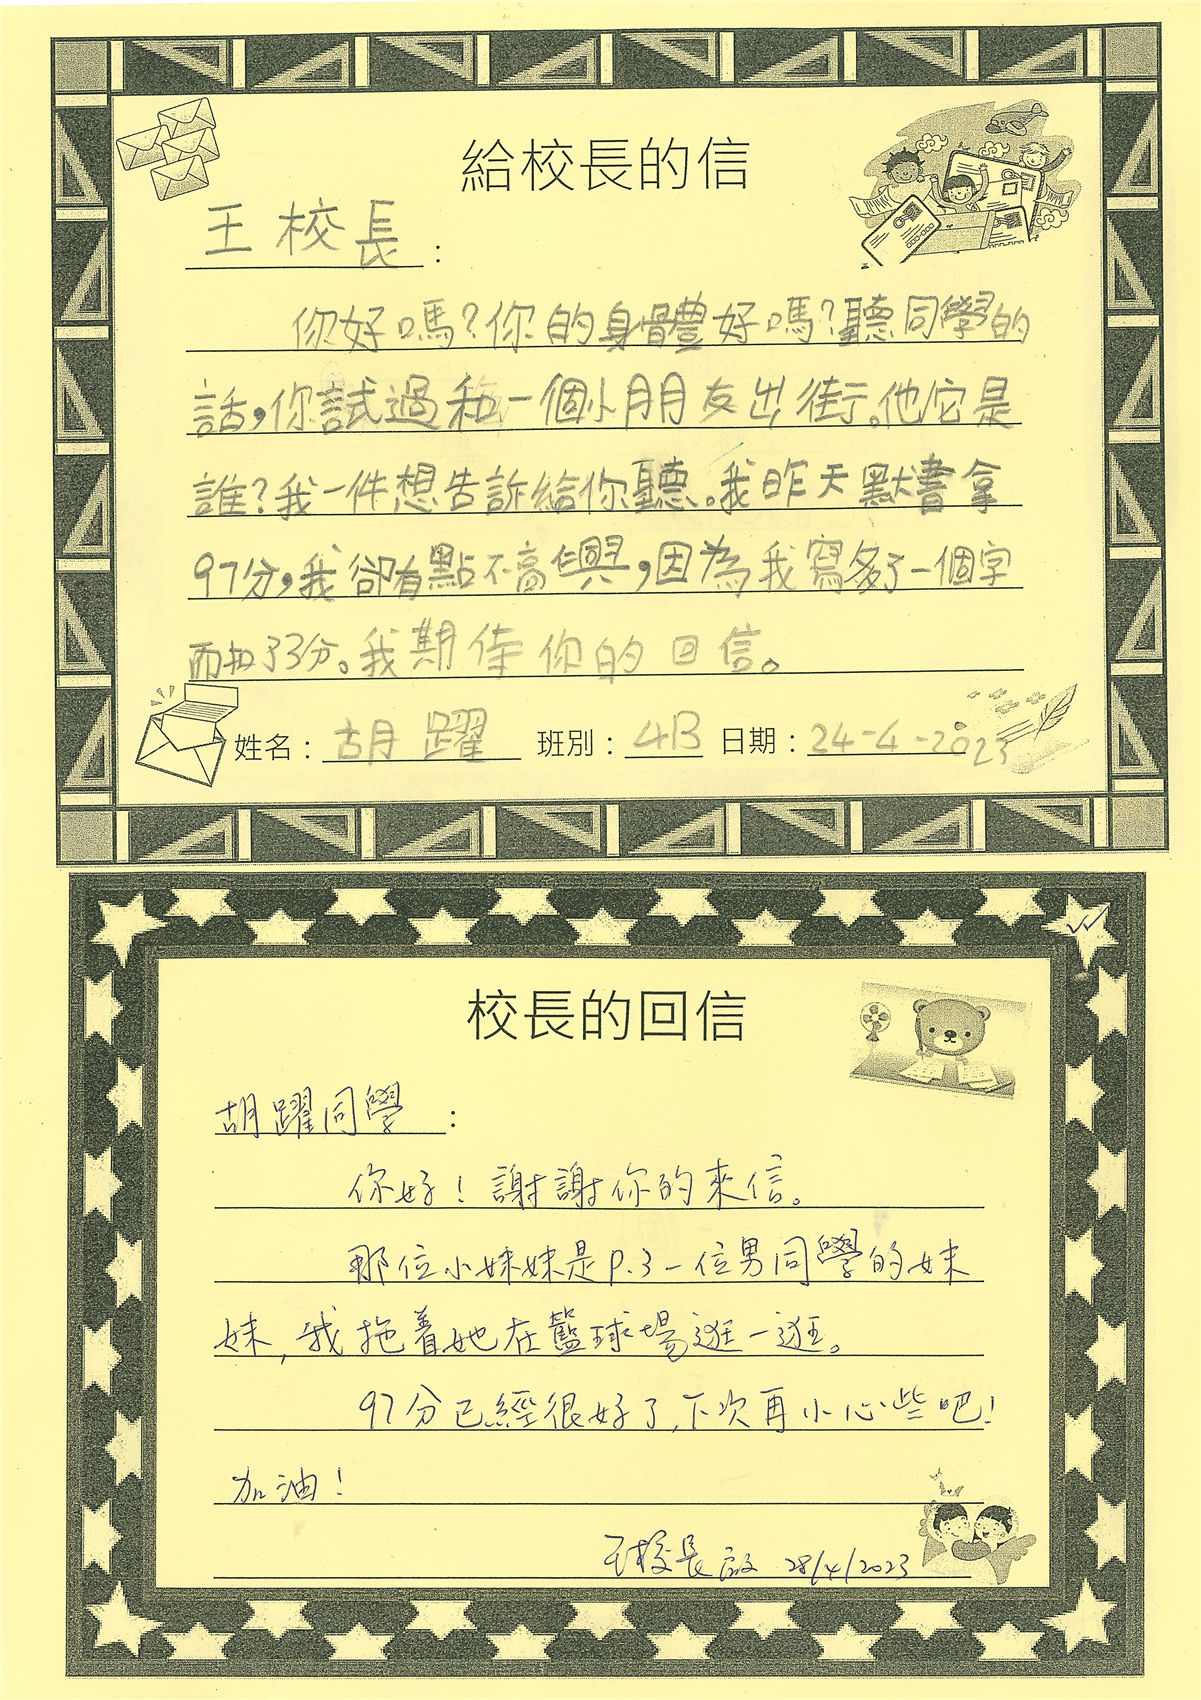 給校長的信
王校長：
你好嗎？你的身體好嗎？聽同學的
話，你試過和一個小朋友出街。他它是
誰？我一件想告訴給你聽。我昨天默書拿
97分，我卻有點不高興，因為我寫多了一個字
而扣了3分。我期待你的回信。
姓名：胡躍 班別：4B 日期：24-4-2023
校長的回信
胡躍同學：
你好！謝謝你的來信。
那位小妹妹是P.3一位男同學的妹
妹，我拖着她在籃球場逛一逛。
97分已經很好了，下次再小心些吧！
加油！
王校長啟 28/4/2023